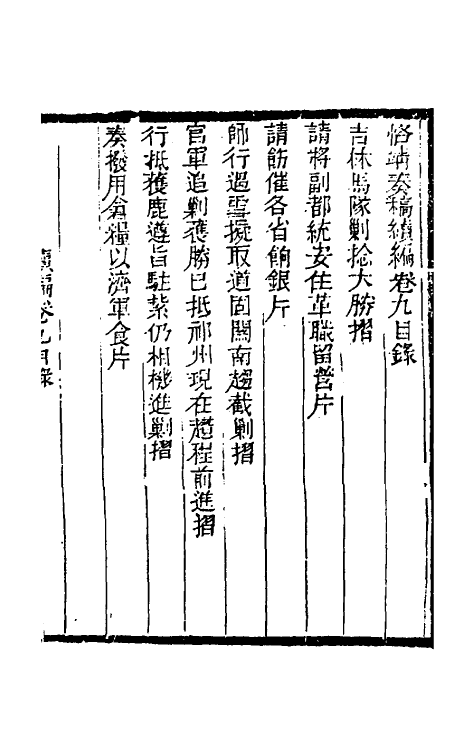 恪靖奏稿續編卷九目錄
吉林馬隊剿捻大勝摺
請將副都統安住革職留營片
請飭催各省餉銀片
師行遇雪擬取道固關南趨截剿摺
官軍追剿獲勝已抵祁州現在趲程前進摺
行抵獲鹿遵旨駐紮仍相機進剿摺
奏撥用倉糧以濟軍食片
續編卷九目錄